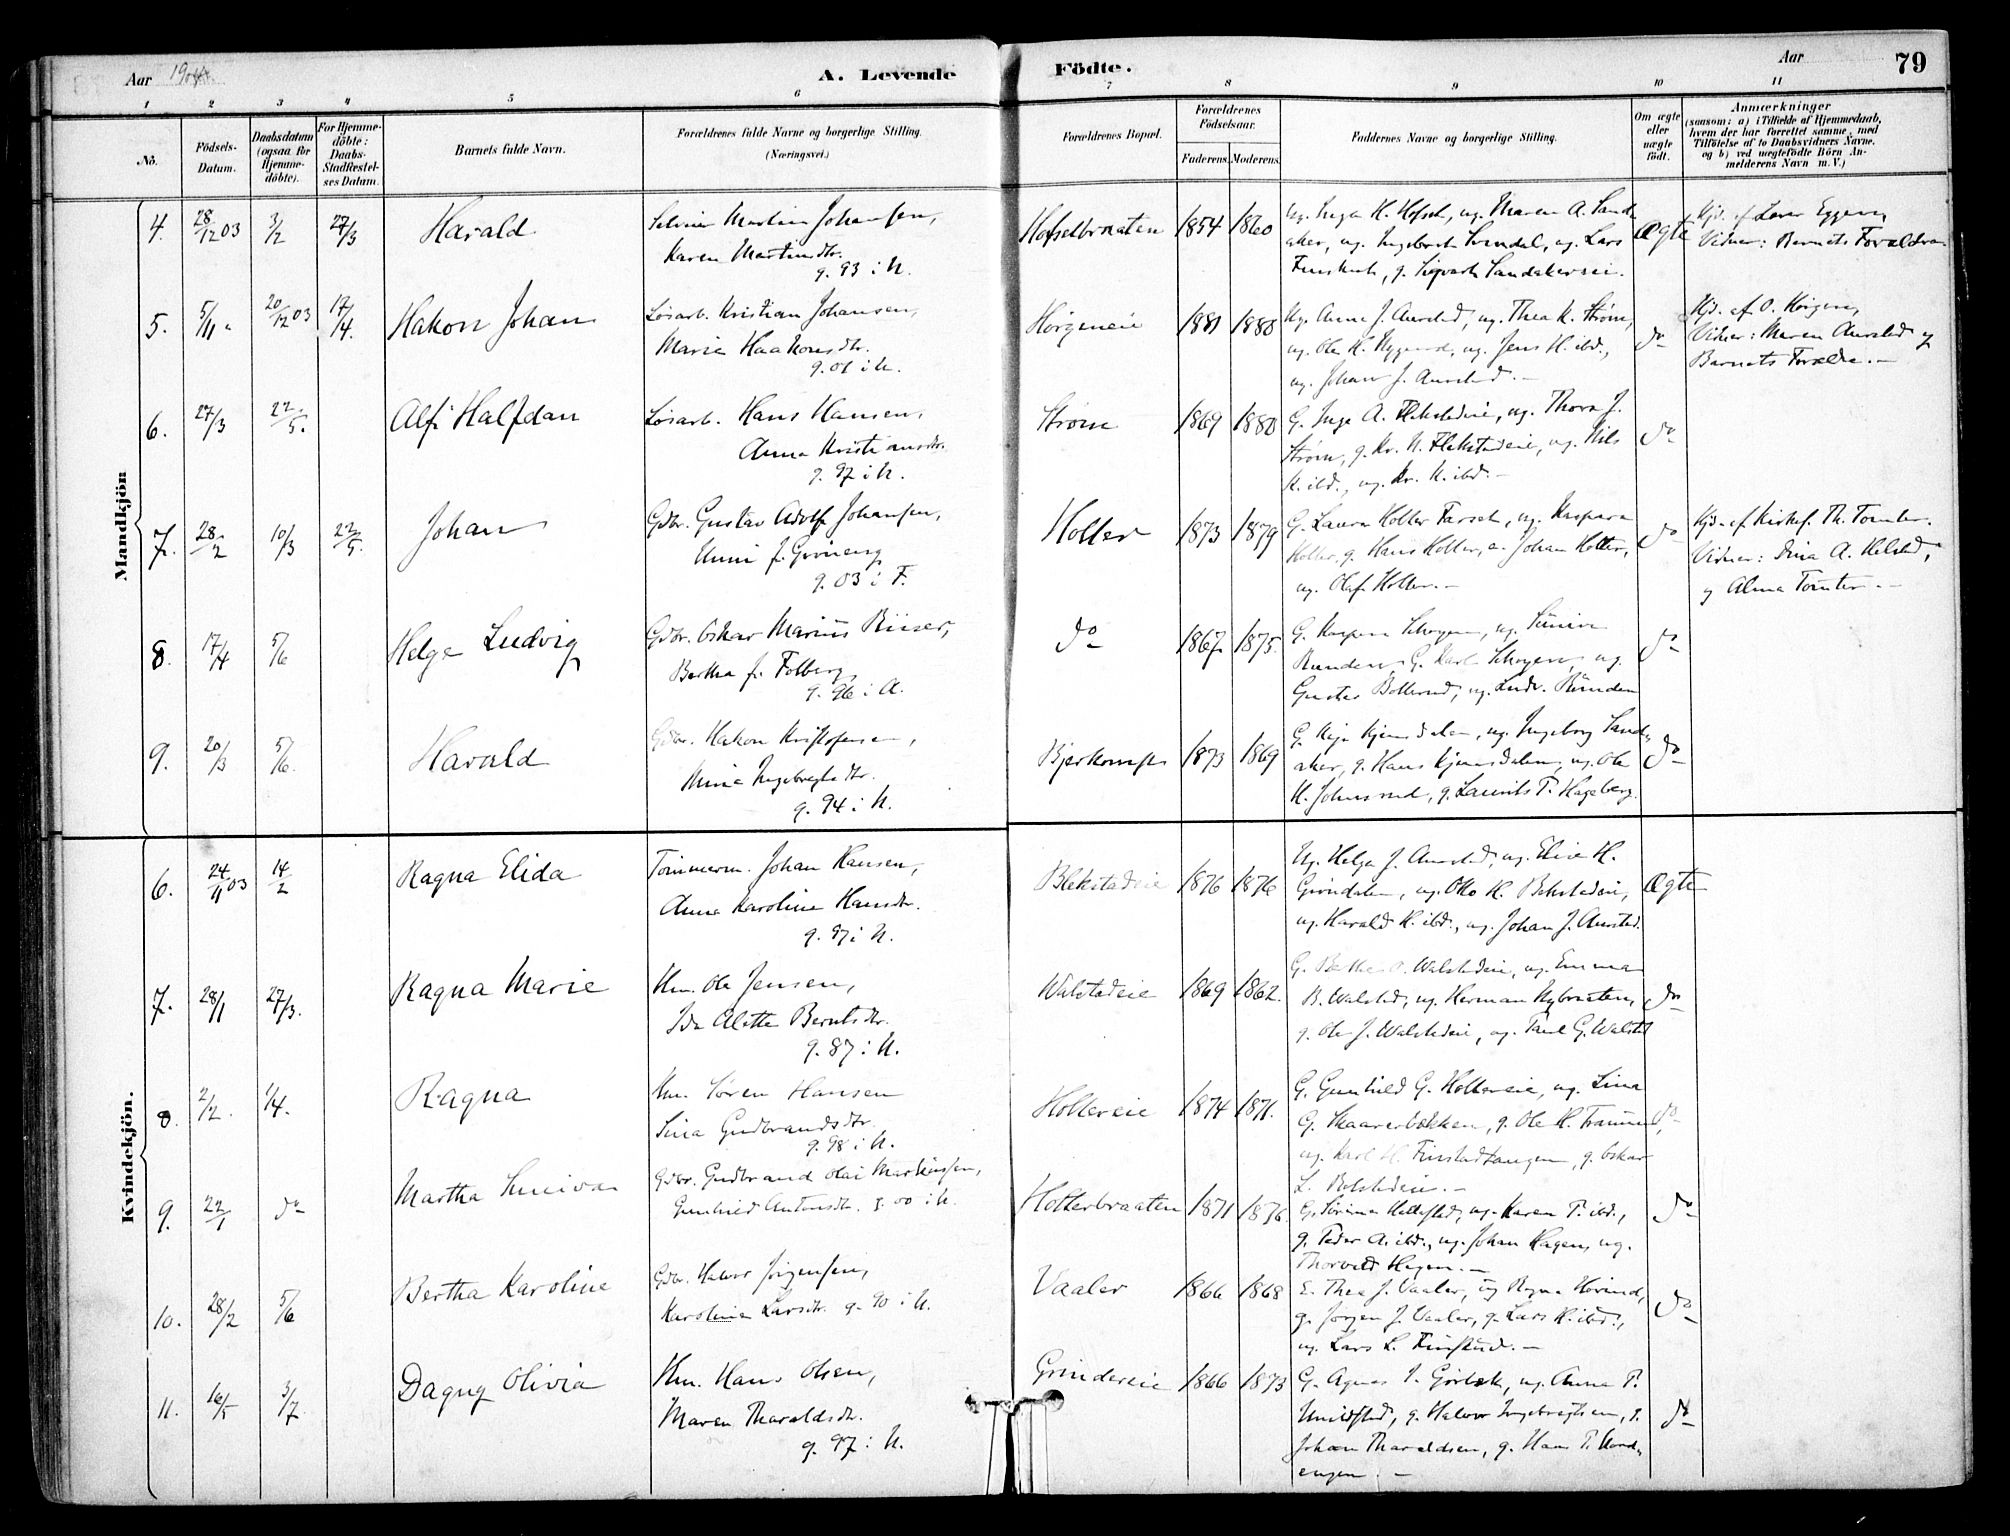 Aar 1904. A. Levende Födte. Aar 79
1 2 3 4 5 6 7 8 9 10 11
No.
Födsels-Datum.
Daabsdatum (ogsaa for Hjemmedöbte).
For Hjemmedöbte: Daabs-Stadfæstelses Datum.
Barnets fulde Navn.
Forældrenes fulde Navne og borgerlige Stilling. (Næringsvei.)
Forældrenes Bopæl.
Forældrenes Födselsaar. Faderens. Moderens.
Faddernes Navne og borgerlige Stilling.
Om ægte eller uægte födt.
Anmærkninger
(saasom: a) i Tilfælde af Hjemmedaab,
hvem der har forrettet samme, med
Tilföielse af to Daabsvidners Navne,
og b) ved uægtefödte Börn An-
melderens Navn m. V.)
Mandkjön
4. 28/12 03 3/2 27/3 Harald
Martin Johansen,
Karen Martinsdtr.
g. 93 i U.
Hofselbraaten 1854 1860
ug. Inga H. ug. Maren A. Sand-
aker, ug. ug. Lars
g. Sigvart Sandakereie.
Ægte
Hjd. af Eggen,
Vidner: Barnets Forældre
5. 5/11 " 20/12 03 17/4. Hakon Johan
Løsarb. Kristian Johansen,
Marie Haakonsdtr.
g. 01 i U.
Hørgeneie 1881 1880
Ug. Anna J. Aurstad, ug. Thea K. Strøm,
ug. Ole H. Nygaard, ug. Jens H. ibd.,
ug. Johan J. Aurstad. -
do
Hjd. af O. Hørgen,
Vidner: Maren Aurstad og
Barnets Forældre. -
6. 27/3 22/5. Alf Halfdan
Løsarb. Hans Hansen,
Anna Kristiansdtr.
g. 97 i U.
Strøm 1869 1880
G. Inga A. ug. Thora J.
Strøm, g. Kr. N. ug. Nils
K. ibd., ug. Kr. K. ibd. -
do
7. 28/2 10/3 22/5. Johan
Gdbr. Gustav Adolf Johansen,
f. Grøneng
g. 03 i F.
Holler 1873 1879
G. Laura Holter ug. Kaspara
Holter, g. Hans Holter, e. Johan Holter,
ug. Olaf Holter. -
do
Hjd. af Kirkes. Th. Tomter.
Vidner: Dina A. Kilstad,
og Alma Tomter. -
8. 17/4 5/6 Helge Ludvig
Gdbr. Oskar Marius Riiser,
Bertha f. Folberg
g. 96 i A.
do 1867 1875.
G. ug.
G. Karl ug.
Gustav ug. Ludv.
do
9. 20/3 5/6. Harald
Gdbr. Hakon Kristofersen,
Mina Ingebregtsdtr.
g. 94 i U.
1873 1869
G. ug. Ingeborg Sand-
aker, g. Hans ug. Ole
H. Johnsrud, g. Laurits P. Hageberg.
do
Kvindekjön.
6. 24/11 03 14/2 Ragna Elida
Tømmerm. Johan Hansen,
Anna Karoline Hansdtr.
g. 97 i U.
1876 1876
Ug. Helga J. Aurstad, ug. Elise H.
Grøndalen, ug. Otto K.
ug. Harald K. ibd., ug. Johan J. Aurstad.
Ægte
7. 28/1 27/3. Ragna Marie
Hm. Ole Jensen,
Ida Alette Berntsdtr.
g. 87 i U.
Walstadeie 1869 1862.
G. Walstadeie, ug. Emma
B. Walstad, ug. Herman Nybraaten,
g. Ole J. Walstadeie, ug. Paul G. Walstad
do
8. 2/2. 4/4. Ragna
Hm. Søren Hansen
Lina Gudbrandsdtr.
g. 98 i U.
Holtereie 1874 1871.
G. Gunhild G. Holtereie, ug. Lina
G. Skaarerbakken, g. Ole K.
ug. Karl H. Finstadtangen, g. Oskar
L.
do
9. 22/1 do Martha Sunniva
Gdbr. Gudbrand Olai Martinsen,
Gunhild Antonsdtr. g. 00 i U.
Holterbraaten 1871 1876.
ug. Karen P. ibd.,
g. Peder A. ibd., ug. Johan Hagen, ug.
Thorvald Hagen. -
do
10. 28/2 5/6 Bertha Karoline
Gdbr. Halvor Jørgensen,
Karoline Larsdtr. g. 90 i U.
Vaaler 1866 1868
E. Thea J. Vaaler, ug.
g. Jørgen J. Vaaler, g. Lars K. ibd.,
ug. Lars L. -
do
11. 16/5 3/7. Dagny Olivia
Hm. Hans Olsen,
Maren Tharaldsdtr.
g. 97 i U.
Grindereie 1866 1873
G. Agnes ug. Anna P.
g. Halvor Ingebregtsen, g.
Johan Tharaldsen, g. Hans P. Nord-
engen. -
do